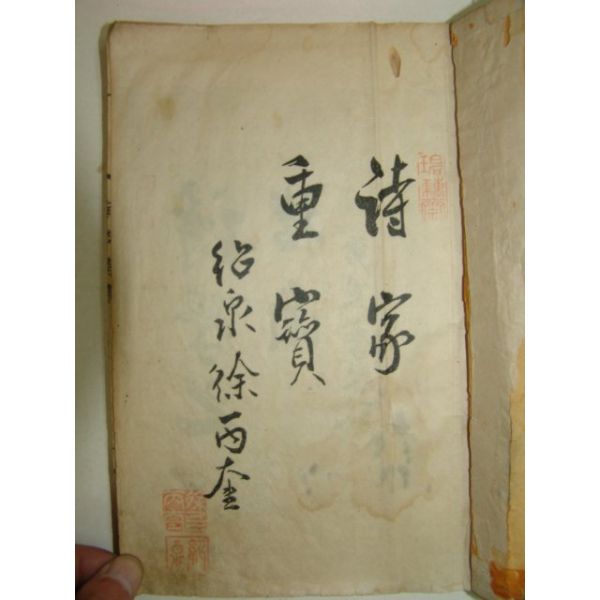 詩家
重寶
紹泉徐丙奎